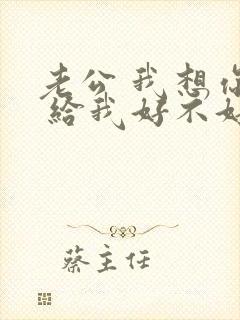 老公我想你
給我好不好
蔡主任